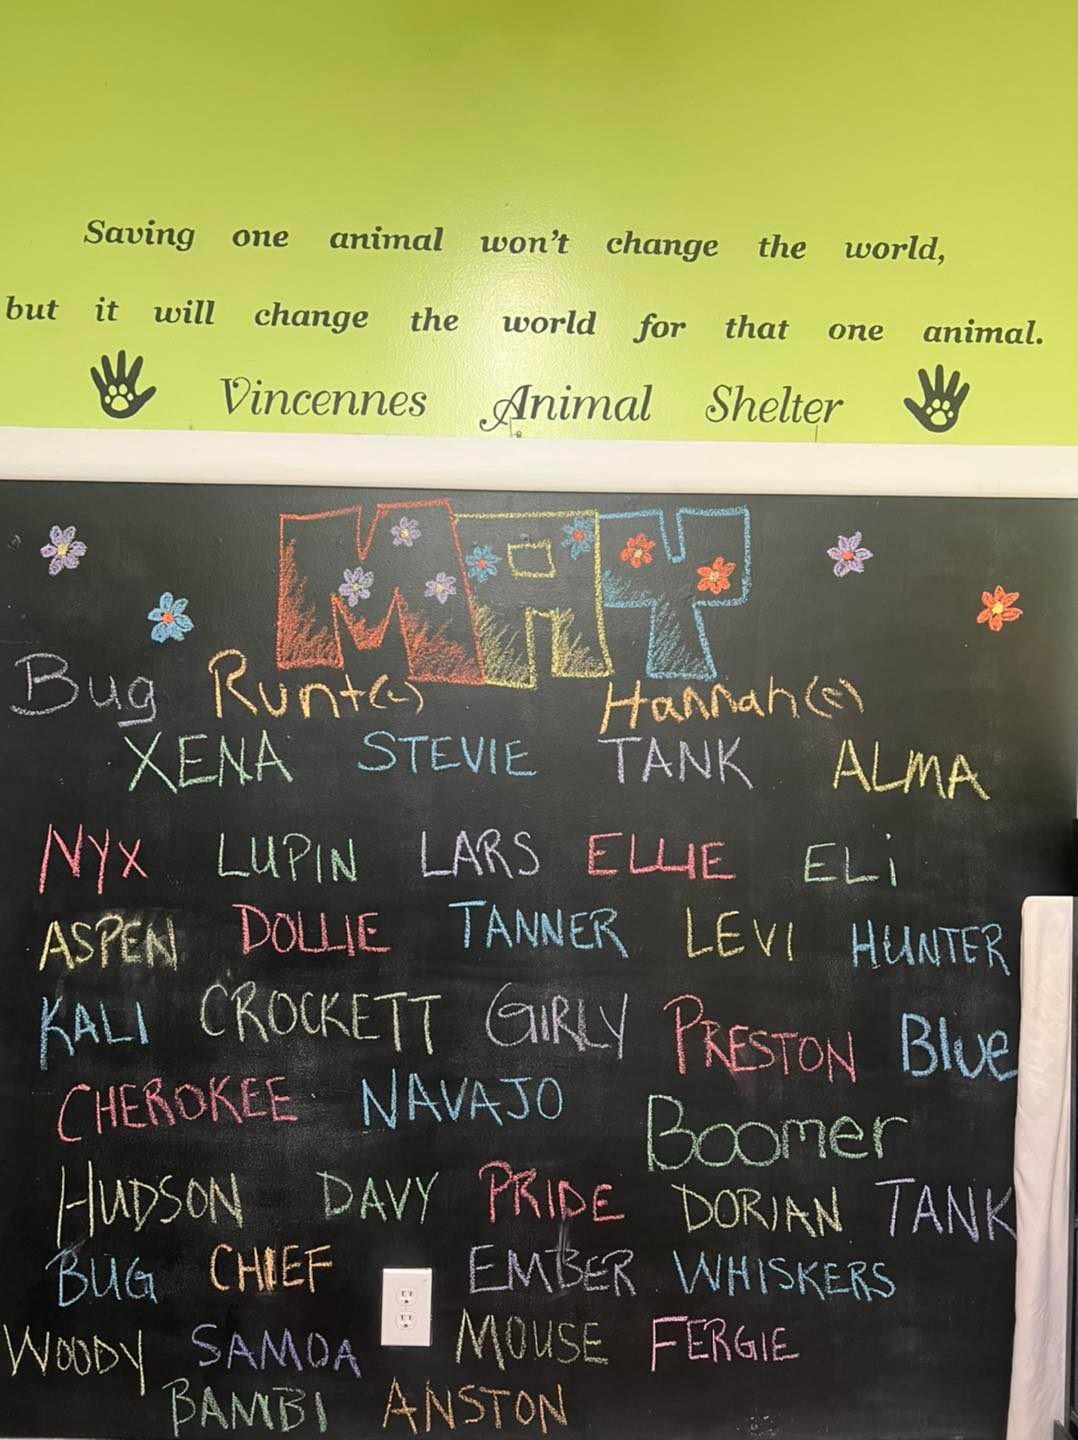 Saving one animal won't change the world,
but it will change the world for that one animal.
Vincennes Animal Shelter
MAY
Bug Runt(c) Hannah(c)
XENA STEVIE TANK ALMA
NYX LUPIN LARS ELLIE ELi
ASPEN DOLLIE TANNER LEVI HUNTER
KALI CROCKETT GIRLY PRESTON Blue
CHEROKEE NAVAJO Boomer
HUDSON DAVY PRIDE DORIAN TANK
BUG CHIEF EMBER WHISKERS
WOODY SAMOA MOUSE FERGIE
BAMBI ANSTON